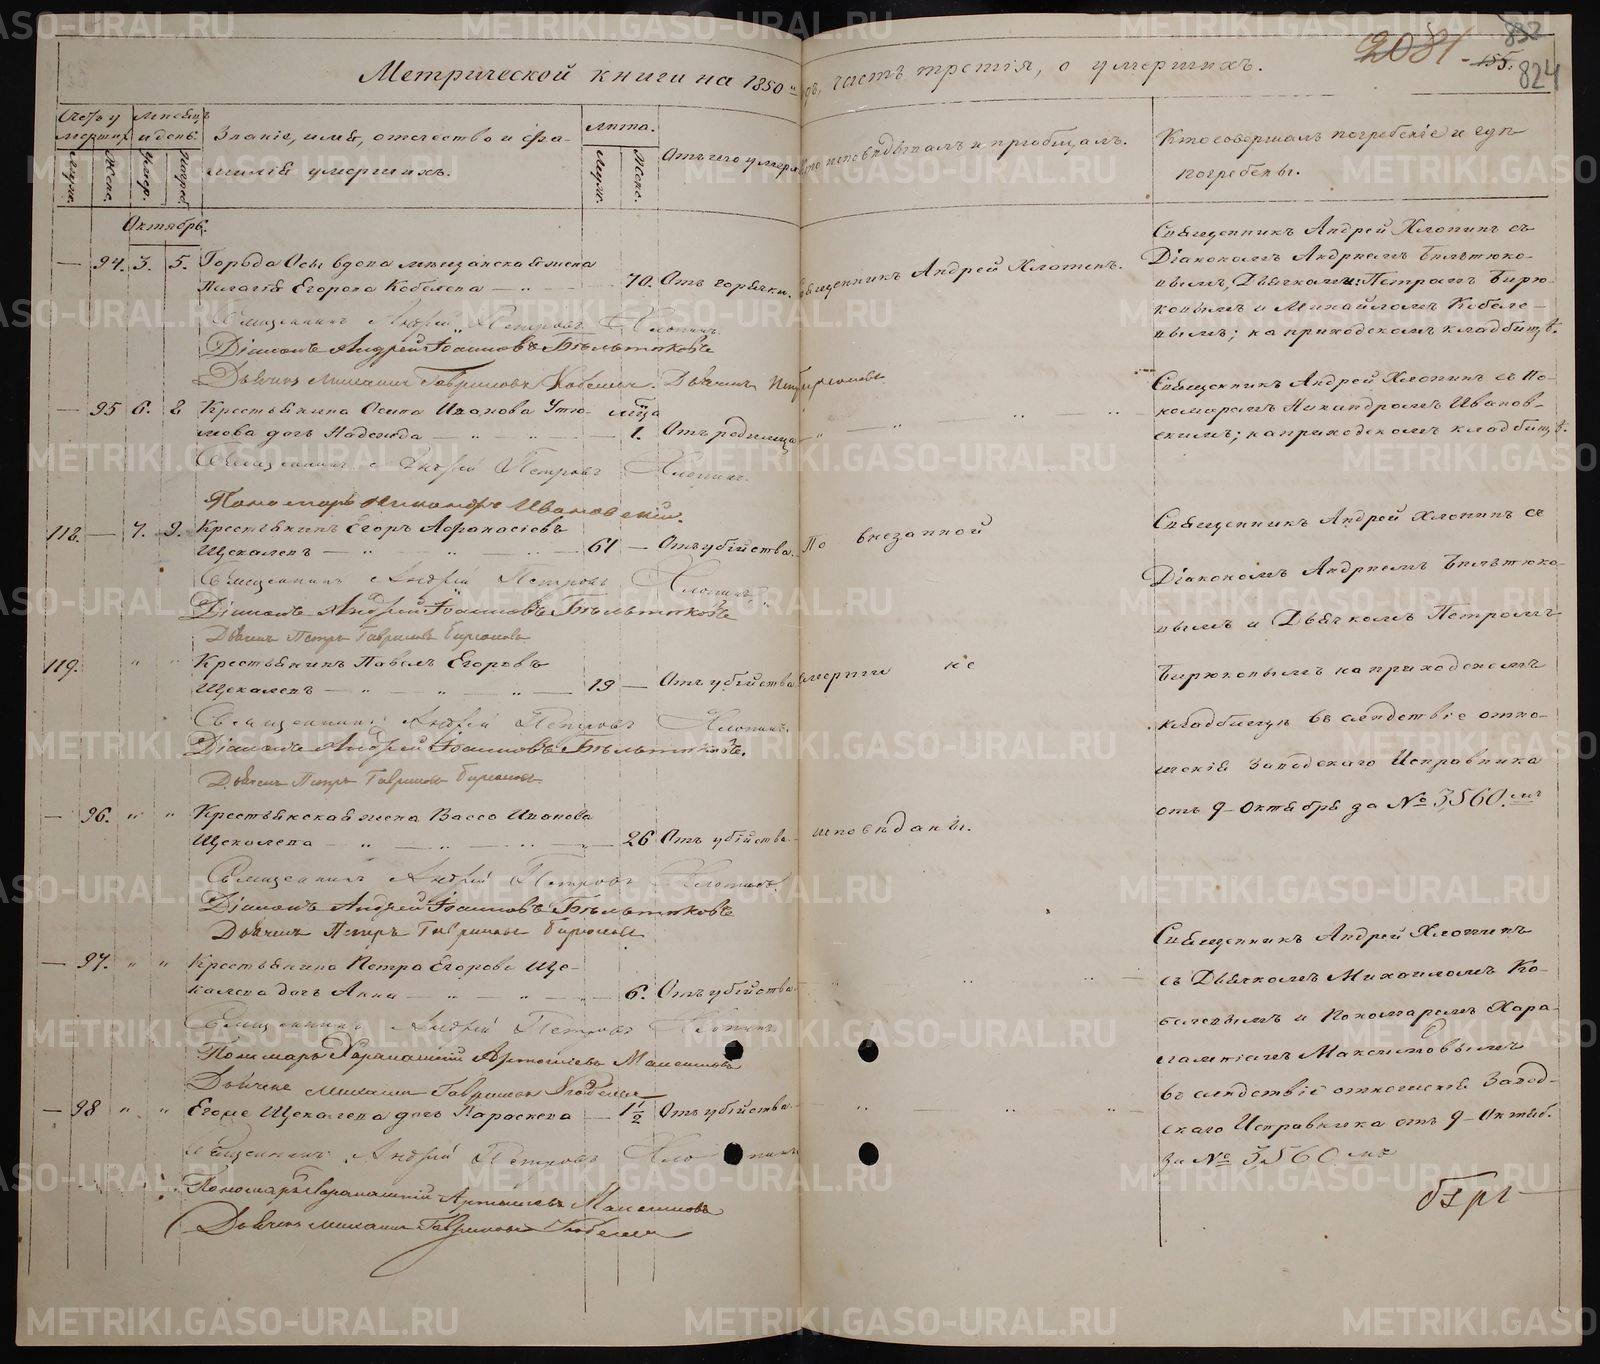 Метрической книги на 1850 годъ, часть третія, о умершихъ.
2031
155.
832
824
Счетъ умершихъ
Мѣсяцъ и день
Званіе, имя, отечество и фамилія умершихъ.
Лѣта.
Отъ чего умеръ
Кто исповѣдывалъ и пріобщалъ.
Кто совершалъ погребеніе и гдѣ погребены.
Муж. Женс. Умер. Погреб. Муж. Женс.
Октябрь.
— 94. 3. 5. Города Осы вдова мѣщанская жена
Пилагія Егорова Кобелева — 70. Отъ горячки.
Священникъ Андрей Хлопинъ.
Священникъ Андрей Хлопинъ съ
Діакономъ Андреемъ Бѣльтюко-
вымъ, Дьячкомъ Петромъ Бирю-
ковымъ и Михайломъ Кобеле-
вымъ; на приходскомъ кладбищѣ.
Священникъ Андрей Петровъ Хлопинъ.
Діаконъ Андрей Іоанновъ Бѣльтюковъ
Дьячекъ Михаилъ Гавриловъ Кобелевъ. Дьячекъ Петръ Бирюковъ
— 95 6. 8 Крестьянина Осипа Иванова Утю-
мова дочь Надежда — мѣсяца 1. Отъ родимца
Священникъ Андрей Хлопинъ съ По-
номаремъ Никандромъ Иванов-
скимъ; на приходскомъ кладбищѣ.
Священникъ Андрей Петровъ Хлопинъ.
Пономарь Никандръ Ивановскій.
118. — 7. 9. Крестьянинъ Егоръ Афанасіевъ
Щекалевъ — 61 — Отъ убійства.
По внезапной
Священникъ Андрей Хлопинъ съ
Священникъ Андрей Петровъ Хлопинъ
Діаконъ Андрей Іоанновъ Бѣльтюковъ
Дьячекъ Петръ Гавриловъ Бирюковъ
Діакономъ Андреемъ Бѣльтюко-
вымъ и Дьячкомъ Петромъ
119. " " Крестьянинъ Павелъ Егоровъ
Щекалевъ — 19 — Отъ убійства
смерти не
Бирюковымъ на приходскомъ
Священникъ Андрей Петровъ Хлопинъ.
Діаконъ Андрей Іоанновъ Бѣльтюковъ.
Дьячекъ Петръ Гавриловъ Бирюковъ
кладбищѣ въ слѣдствіе отно-
шенія Заводскаго Исправника
отъ 9 Октября за № 3560.мъ
— 96. " " Крестьянская жена Васса Иванова
Щекалева — 26 Отъ убійства
исповѣданы.
Священникъ Андрей Петровъ Хлопинъ.
Діаконъ Андрей Іоанновъ Бѣльтюковъ
Дьячекъ Петръ Гавриловъ Бирюковъ
— 97. " " Крестьянина Петра Егорова Ще-
калева дочь Анна — 6. Отъ убійства
Священникъ Андрей Хлопинъ
съ Дьячкомъ Михаиломъ Ко-
белевымъ и Пономаремъ Хара-
лампіемъ Максимовымъ
въ слѣдствіе отношенія Завод-
скаго Исправника отъ 9 Октяб.
за № 3560мъ
Священникъ Андрей Петровъ Хлопинъ
Пономарь
Дьячекъ Михаилъ Гавриловъ Кобелевъ
— 98 " " Егоже Щекалева дочь Параскева — 1 1/2 Отъ убійства
Священникъ Андрей Петровъ Хлопинъ
Пономарь
Дьячекъ Михаилъ Гавриловъ Кобелевъ
METRIKI.GASO-URAL.RU